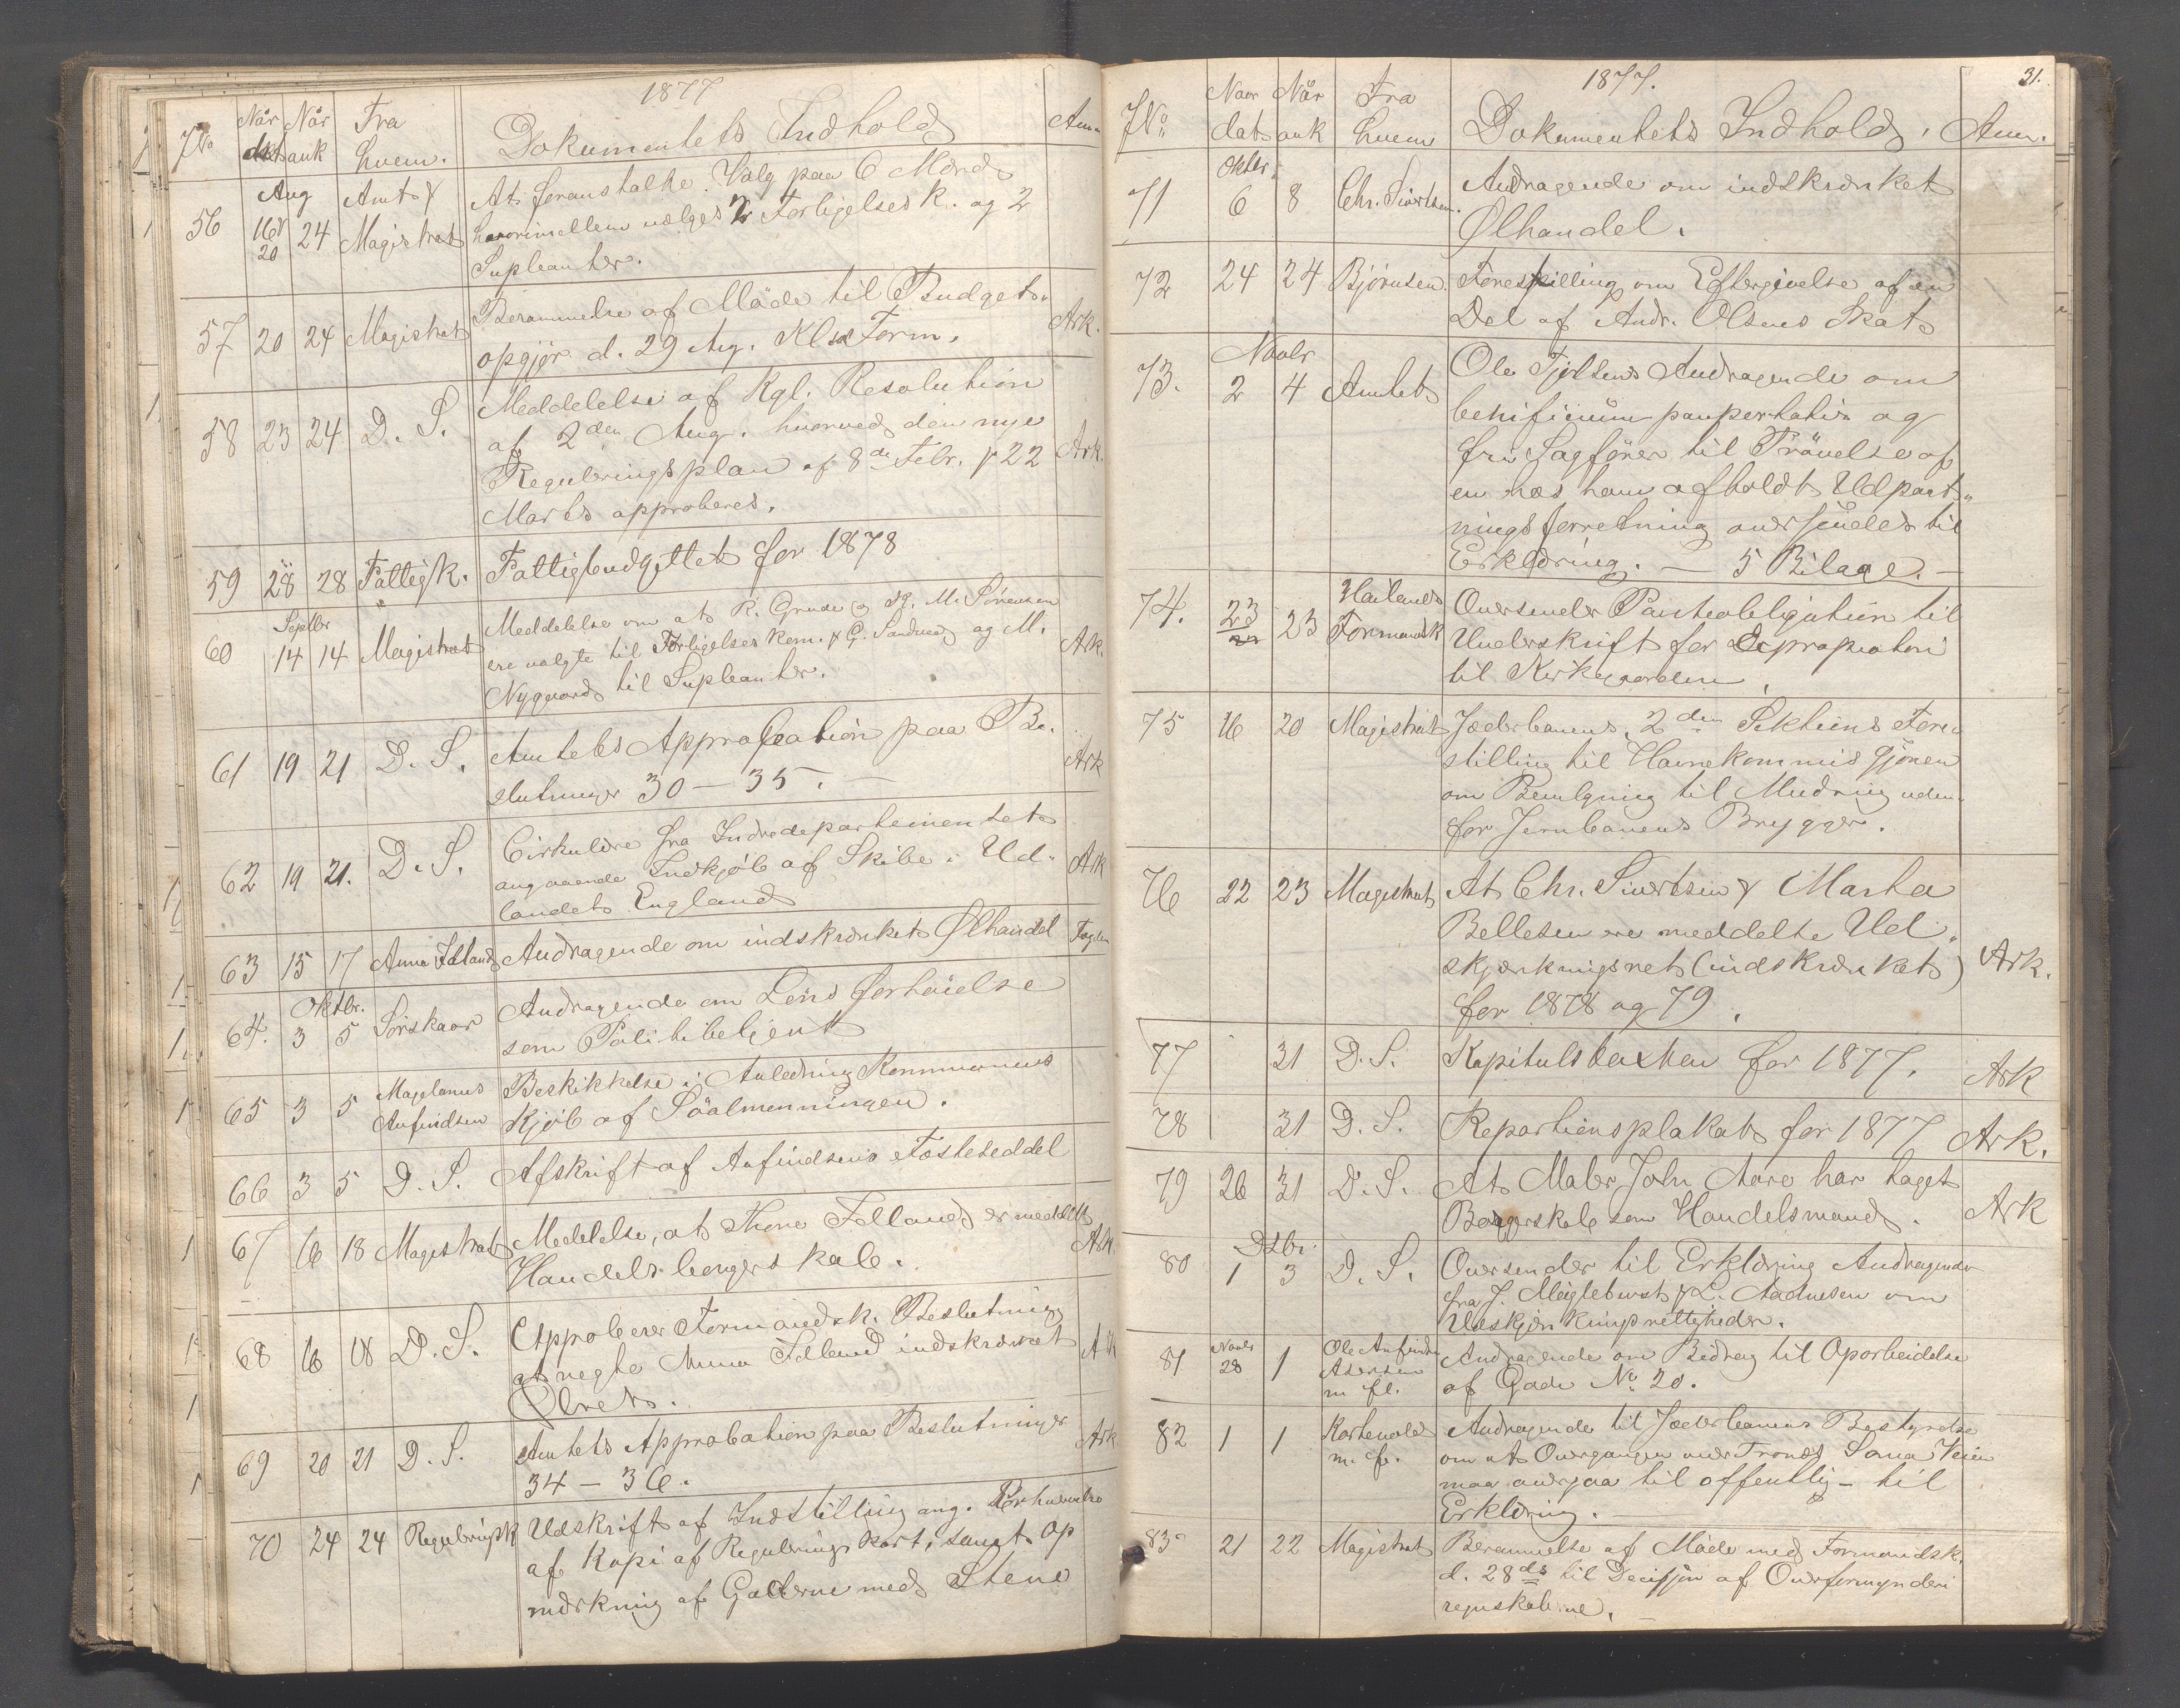 1877
No Når dat Når ank Fra hvem. Dokumentets Indhold Anm
Aug
56 16 & 20 24 Amt & Magistrat At foranstalte Valg paa 6 Mænd
hvorimellem vælges 2 Forligelsesk. og 2
Supleanter.
57 20 24 Magistrat Berammelse af Møde til Budgets- Ark.
opgjør d. 29 Aug. Kl Form.
58 23 24 D. S. Meddelelse af Kgl. Resolution
af 2den Aug. hvorved den nye
Reguleringsplan af 8de Febr. & 22 Ark.
Marts approberes.
59 28 28 Fattigk. Fattigbudgettet for 1878
Septbr
60 14 14 Magistrat Meddelelse om at R. Grude og M. Sørensen
ere valgte til Forligelses Kom. & G. Sandved og M. Ark.
Nygaard til Supleanter.
61 19 21 D. S. Amtets Approbation paa Be- Ark
slutninger 30 – 35. –
62 19 21. D. S. Cirkulære fra Indredepartementet
angaaende Indkjøb af Skibe i Ud- Ark
landet England
63 15 17 Anna Idland Andragende om indskrænket Ølhandel
Oktbr.
64. 3 5 Sørskaar Andragende om Löns forhöielse
som Politibetjent
65 3 5 Magdanus Anfindsen Beskikkelse i Anledning Kommunens
Kjøb af Söalmenningen.
66 3 5 D. S. Afskrift af Anfindsens Fæsteseddel
67 16 18 Magistrat Meddelelse, at Thore Folland er meddelt Ark.
Handelsborgerskab.
68 16 18 D. S. Approberer Formandsk. Beslutning
at negte Anna Idland indskrænket Ark
Ølret.
69 20 21 D. S. Amtets Approbation paa Beslutninger Ark
34 – 36.
70 24 24 Reguleringsk Udskrift af Indstilling ang. Erhvervelse
af Kopi af Regulerings kart, samt Op
mærkning af Gaderne med Stene
31.
1877.
No Naar dat Når ank Fra hvem Dokumentets Indhold. Anm.
Oktbr.
71 6 8 Chr. Sivertsen. Andragende om indskrænket
Ølhandel.
72 24 24 Bjørnsen. Forestilling om Eftergivelse af en
Del af Andr. Olsens Skat
Novbr
73. 2 4 Amtet Ole Tjeltens Andragende om
benificium paupertatis og
fri Sagfører til Prövelse af
en hos ham afholdt Udpant-
ningsforretning oversendes til
Erklæring. – 5 Bilage. –
74. 23 23 Hailands Formandsk Oversender Panteobligation til
Underskrift for Expropriation
til Kirkegaarden
75 16 20 Magistrat Jæderbanens 2den Sektions Fore-
stilling til Havnekommissjonen
om Bevilgning til Mudring uden-
for Jernbanens Brygger.
76 22 23 Magistrat At Chr. Sivertsen & Marta
Bellesen ere meddelte Ud-
skjænkningsret (indskrænket) Ark.
for 1878 og 79.
77 31 D. S. Kapitulstaxten for 1877. Ark
78 31 D. S. Repartionsplakat for 1877 Ark.
79 26 31 D. S. At Maler John Aare har taget
Borgerskab som Handelsmand. Ark
Dcbr.
80 1 3 D. S. Oversender til Erklæring Andragender
fra J. Meglebust & L. Aadnesen om
Udskjænkningsrettigheder.
81 Novbr 28 1 Ole Anfinds Asersen m fl. Andragende om Bidrag til Oparbeidelse
af Gade No 20.
82 1 1 Kartevold m. fl. Andragende til Jæderbanens Bestyrelse
om at Overgangen over Tronds Soma Veien
maa overgaa til offentlig – til
Erklæring. –
83 21 22 Magistrat Berammelse af Møde med Formandsk.
d. 28de til Decisjon af Overformynderi
regnskaberne. –